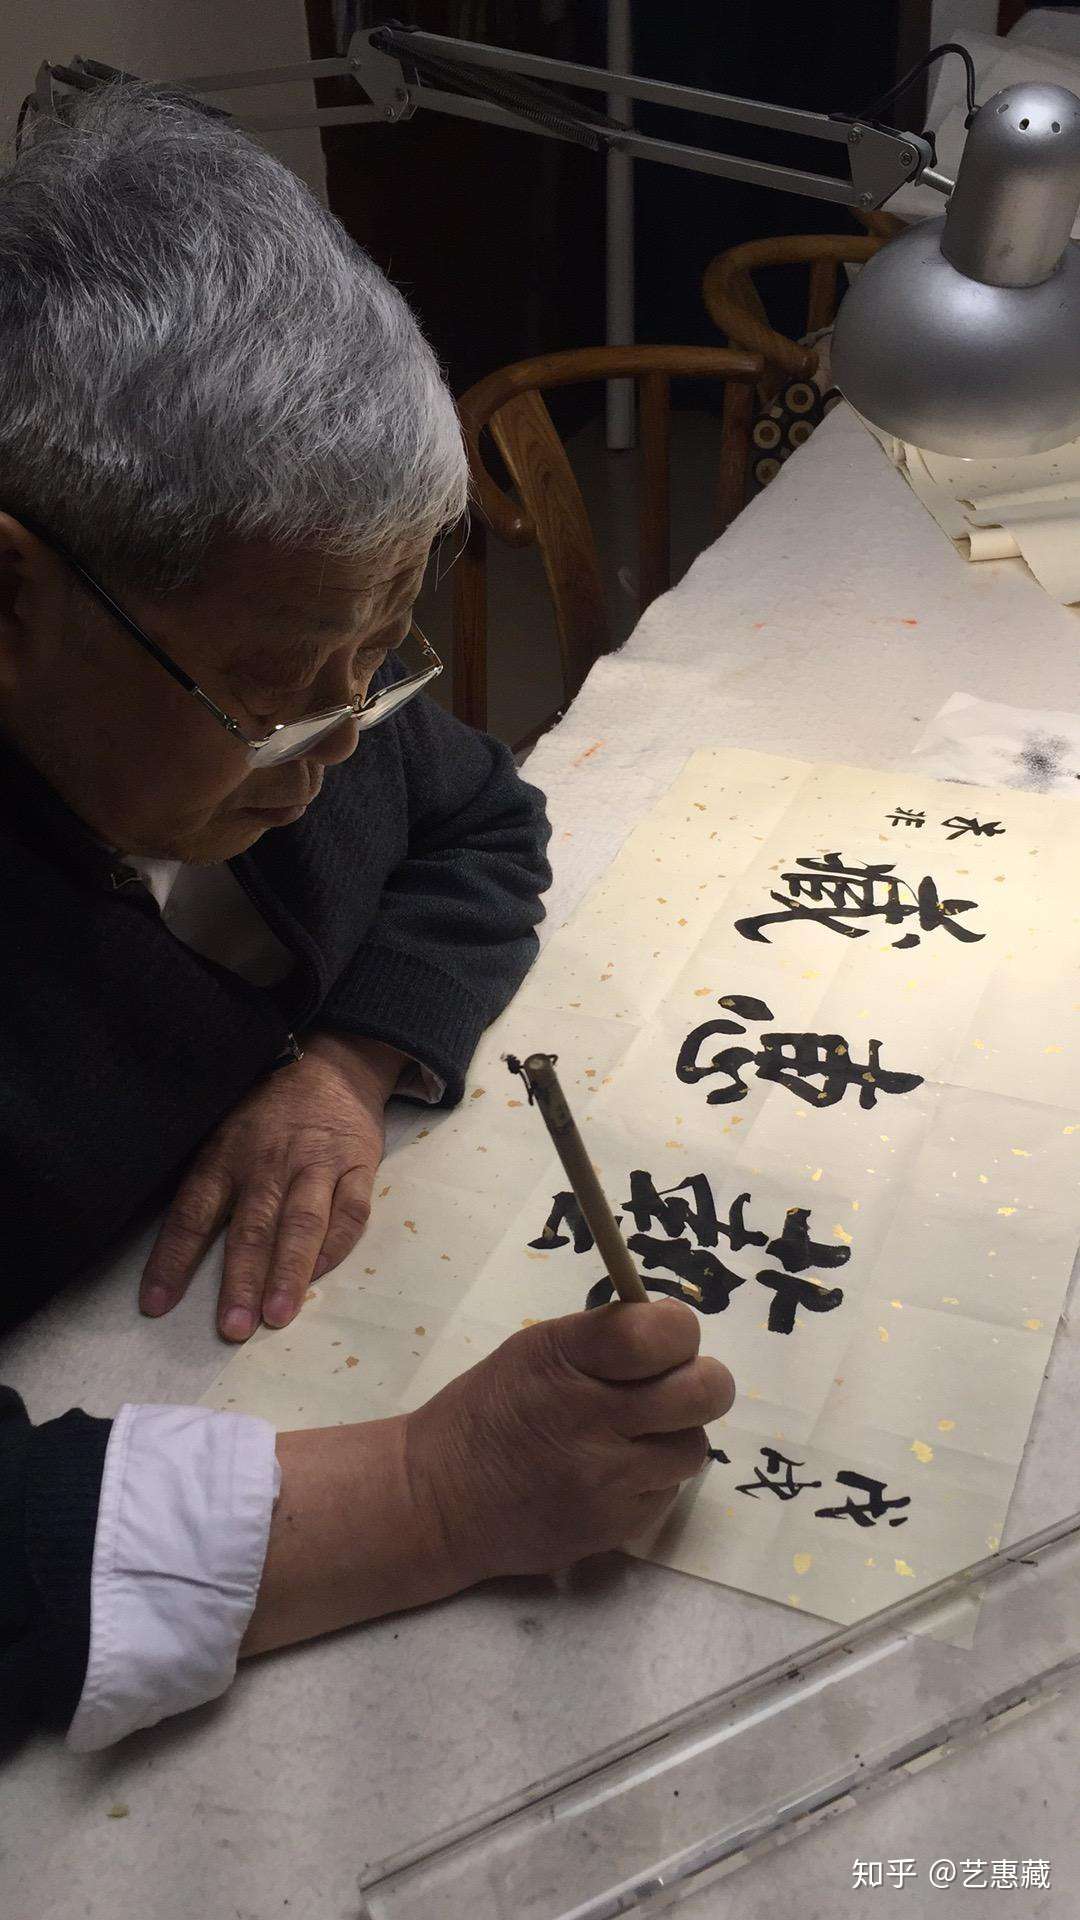 戊戌
藝惠藏
非
知乎 @艺惠藏